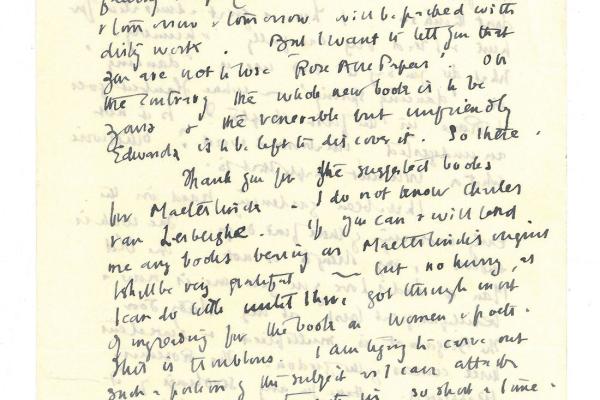 & tomorrow & tomorrow will be packed with
dirty work. But I want to tell you that
you are not to lose 'Rose Acre Papers'. On
the contrary the whole new book is to be
yours & the venerable but unfriendly
Edwards is to be left to discover it. So there.
Thank you for the suggested books
for Maeterlinck. I do not know Charles
van Lerberghe. If you can & will lend
me any books bearing on Maeterlinck's origins
I shall be very grateful — but no hurry, as
I can do little until I have got through most
of my reading for the book on women & poets.
This is troublous. I am trying to carve out
such a portion of the subject as I can attack
in so short a time.